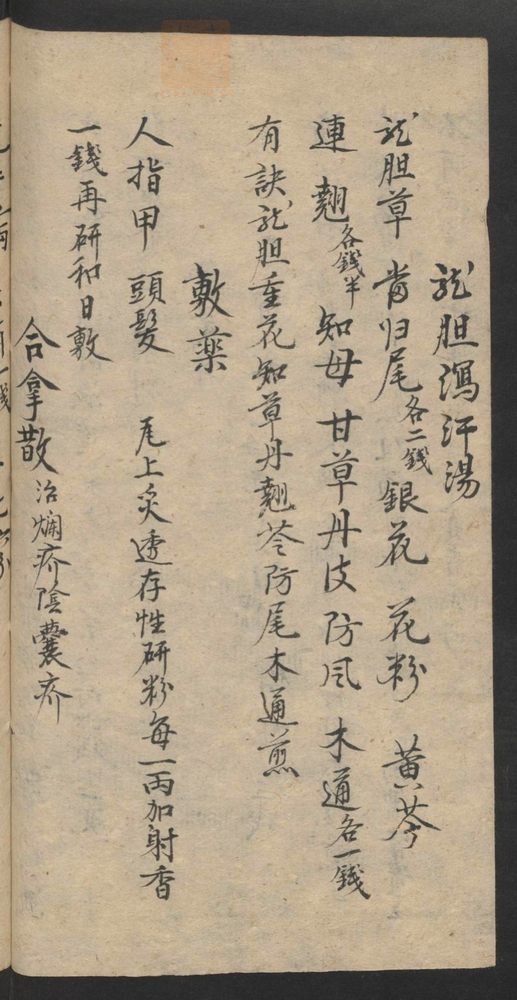 龙胆瀉汗湯
龙胆草 當归尾各二錢 銀花 花粉 黄芩
連翹各錢半 知母 甘草 丹皮 防风 木通各一錢
有訣龙胆重花知草丹翹芩防尾木通煎
敷藥
人指甲 頭髮 尾上炙透存性研粉每一両加射香
一錢再研和日敷
合拿散治爛疥陰囊疥